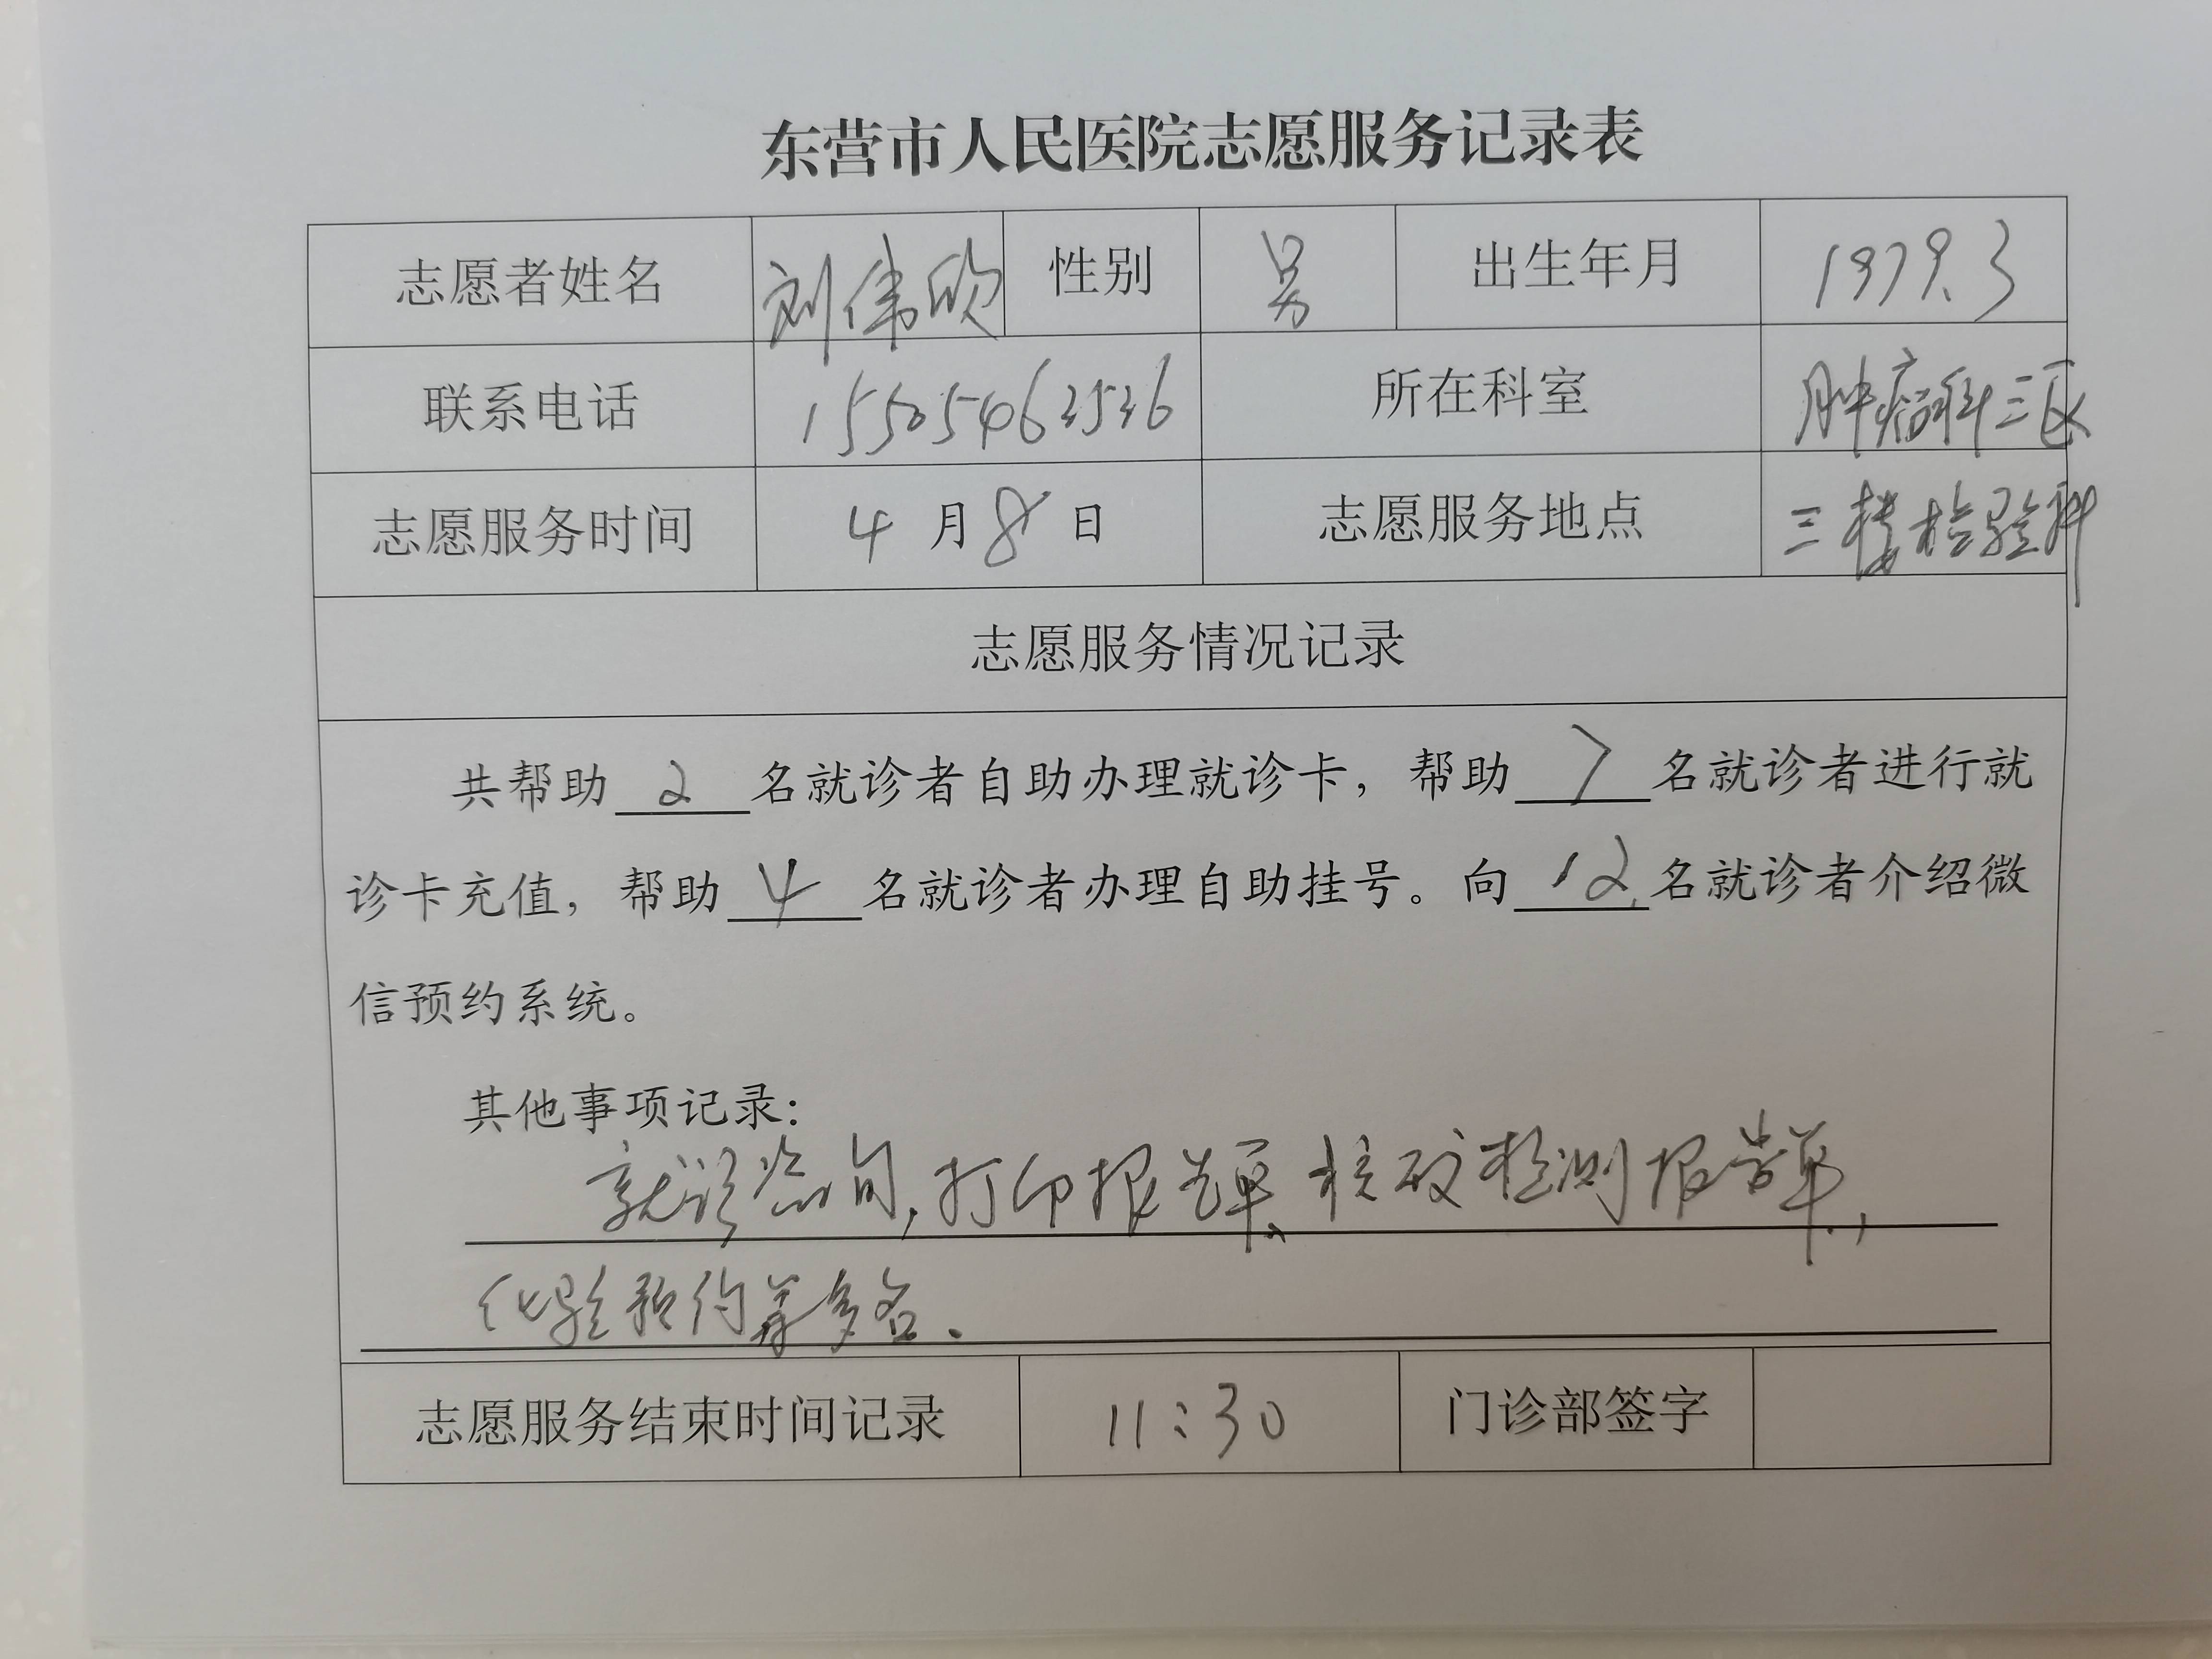 东营市人民医院志愿服务记录表
志愿者姓名 刘伟欣 性别 男 出生年月 1979.3
联系电话 15505463536 所在科室 肿瘤科三区
志愿服务时间 4月8日 志愿服务地点 三楼检验科
志愿服务情况记录
共帮助 2 名就诊者自助办理就诊卡，帮助 7 名就诊者进行就
诊卡充值，帮助 4 名就诊者办理自助挂号。向 12 名就诊者介绍微
信预约系统。
其他事项记录：
就诊咨询，打印报告单、核酸检测报告单，
化验预约等多名。
志愿服务结束时间记录 11:30 门诊部签字